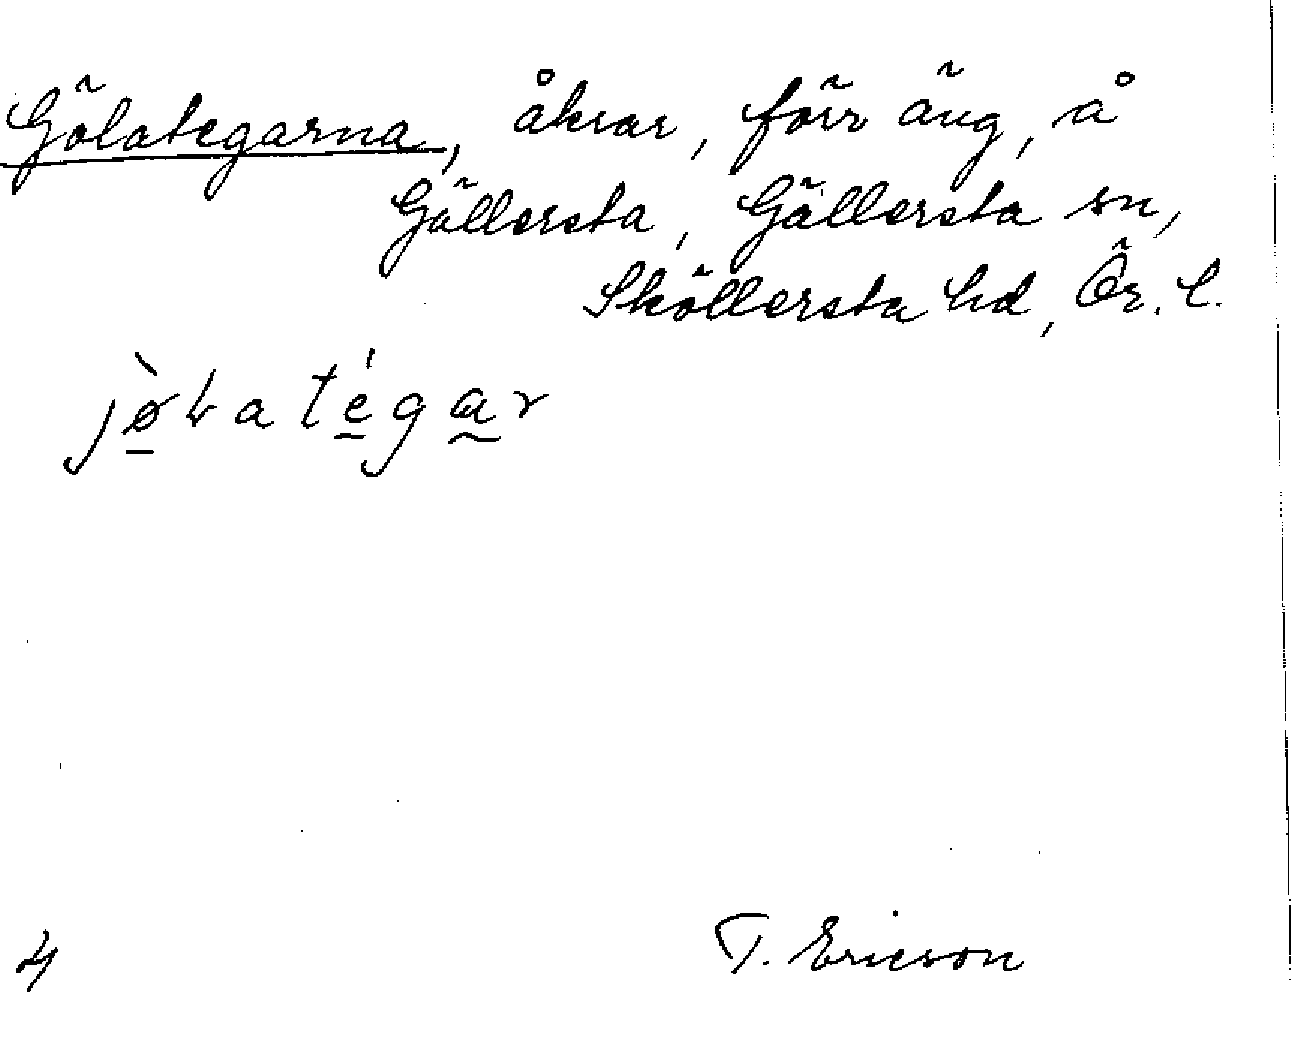 Gölategarna, åkrar, förr äng, å
Gällersta, Gällersta sn,
Sköllersta hd, Ör. l.
jø̀ɫatégar
4
T. Ericson